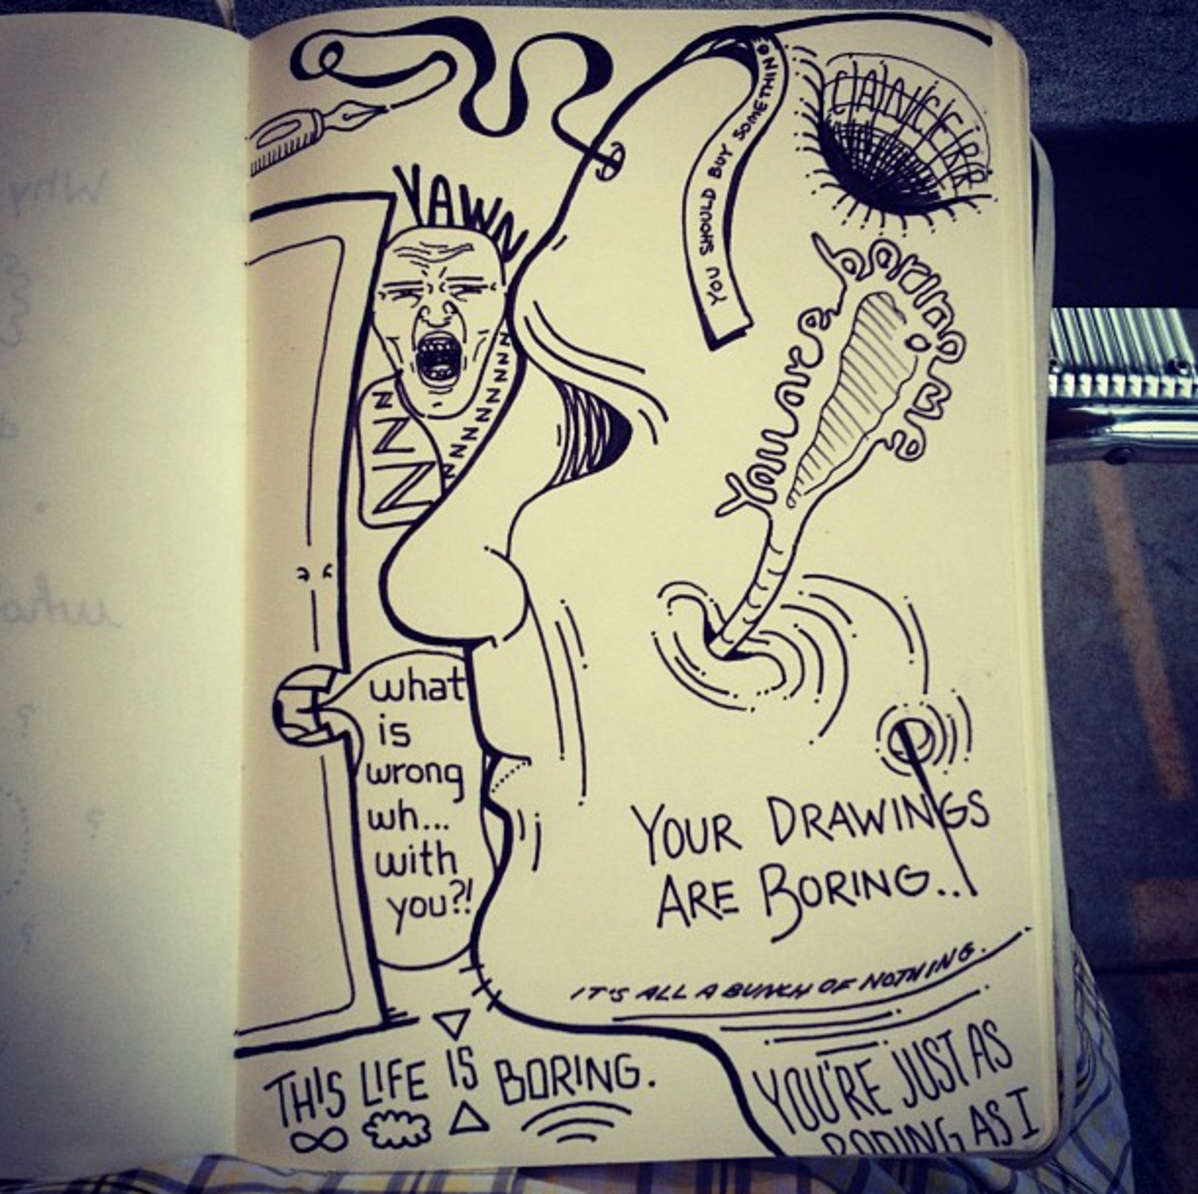 YAWN
YOU SHOULD BUY SOMETHING
CANCER
You are boring me
N N N N
N N N N N N N N N N
what
is
wrong
wh...
with
you?!
YOUR DRAWINGS
ARE BORING..
IT'S ALL A BUNCH OF NOTHING.
THIS LIFE IS BORING.
YOU'RE JUST AS
BORING AS I
Why
?
?
?